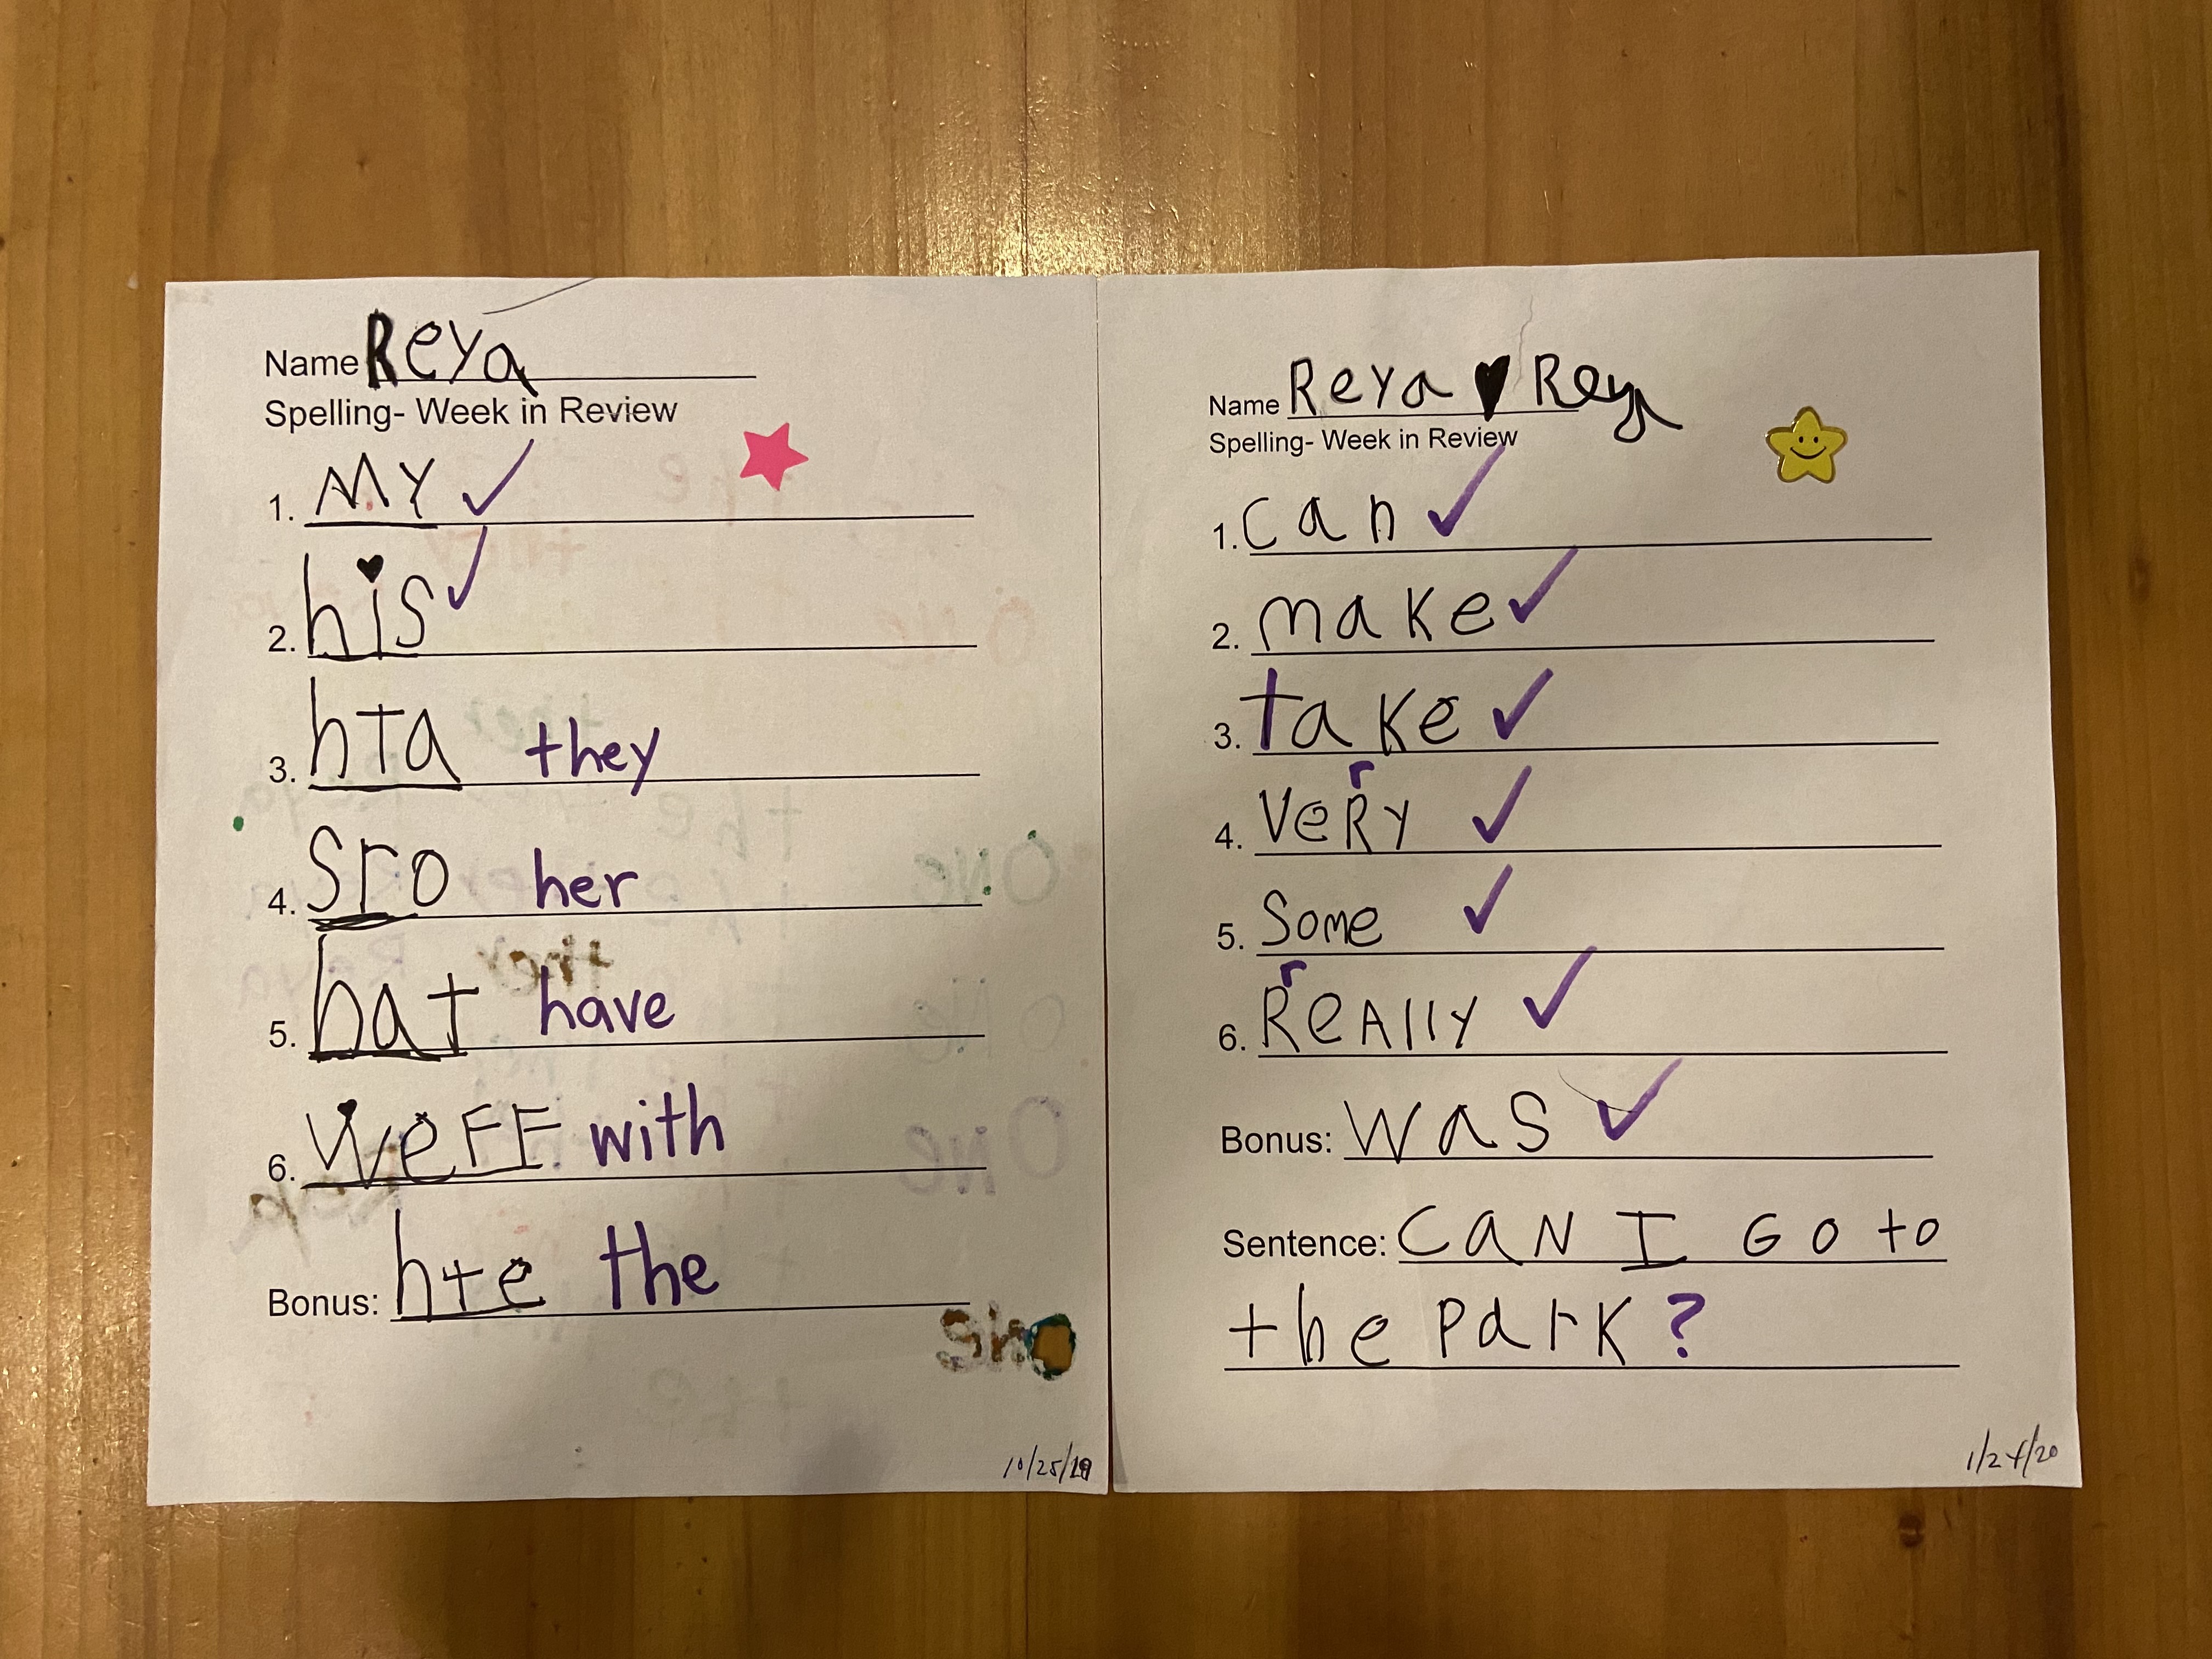 Name Reya
Spelling- Week in Review
1. My ✓
2. his ✓
3. hTa they
4. Sro her
5. hat have
6. WeFF with
Bonus: hte the
one
10/25/19
Name Reya ♥ Reya
Spelling- Week in Review
1. can ✓
2. make ✓
3. take ✓
r
4. VeRy ✓
5. Some ✓
r
6. ReAlly ✓
Bonus: was ✓
Sentence: CaN I Go to
the ParK?
1/24/20